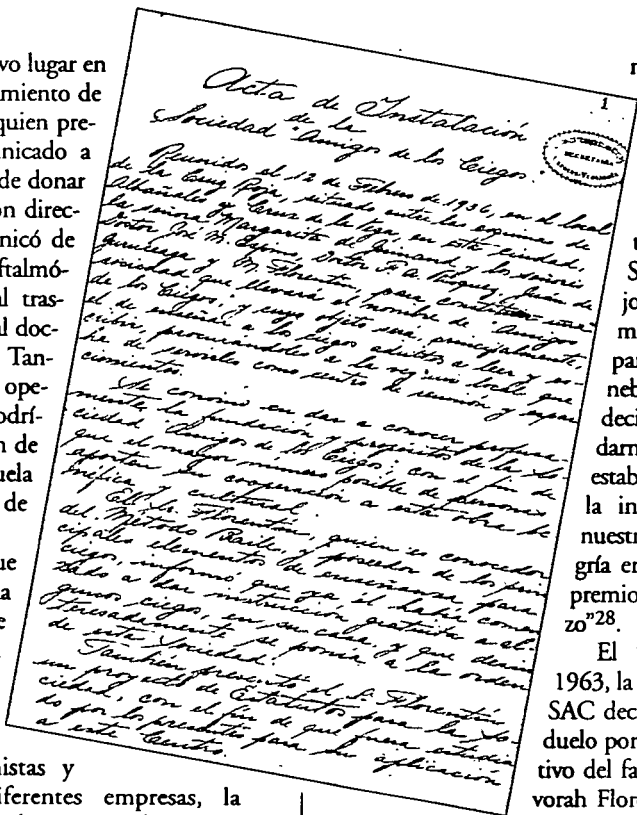 vo lugar en
miento de
quien pre-
nicado a
de donar
on direc-
nicó de
ftalmó-
al tras-
al doc-
Tan-
ope-
odrí-
n de
uela
de
ue
a
e
nistas y
iferentes empresas, la
1
Acta de Instalación
de la
Sociedad "Amigos de los Ciegos."
Reunidos el 12 de Febrero de 1936, en el local
de la Cruz Roja, situado entre las esquinas de
Albañales y Cruz de la Vega, en esta ciudad,
la señora Margarita de Guinand y los señores
Doctor José M. Espino, Doctor F. A. Rísquez, Juán de
Guruceaga y M. Florentín, para constituir una
sociedad que llevará el nombre de "Amigos
de los Ciegos", y cuyo objeto será, principalmente,
el de enseñar a los ciegos adultos a leer y es-
cribir, procurándoles a la vez un local que
ha de servirles como centro de reunión y espar-
cimiento.
Se convino en dar a conocer profusa-
mente la fundación y propósitos de la So-
ciedad "Amigos de los Ciegos", con el fin de
que el mayor número posible de personas
aporten su cooperación a esta obra be-
néfica y cultural.
El Sr. Florentín, quien es conocedor
del Método Braile, y poseedor de los prin
cipales elementos de enseñanza para
ciegos, informó que ya él había comen
zado a dar instrucción gratuita a al-
gunos ciegos, en su casa, y que desin
teresadamente se ponía a la orden
de esta Sociedad.
También presentó el Sr. Florentín
un proyecto de Estatutos para la So-
ciedad, con el fin de que fuera estudia
do por los presentes para su aplicación
a este Centro.
t
S
jo
m
par
neb
deci
darn
estab
la in
nuestr
gría en
premio
zo"28.
El
1963, la
SAC dec
duelo por
tivo del fa
vorah Flor